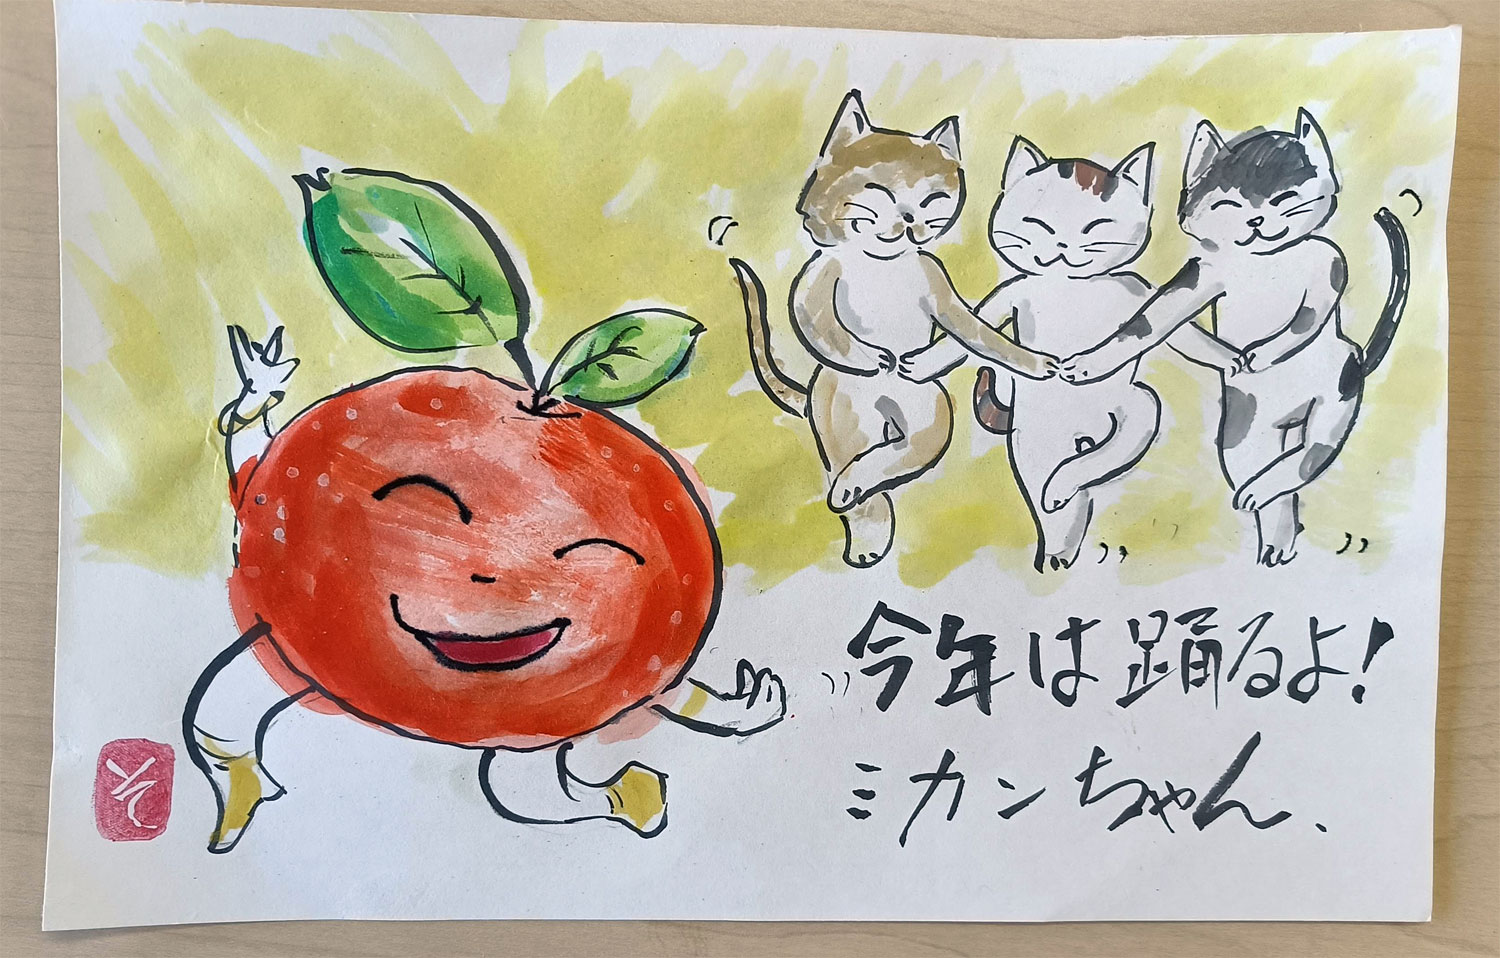 今年は踊るよ!
ミカンちゃん、
そ